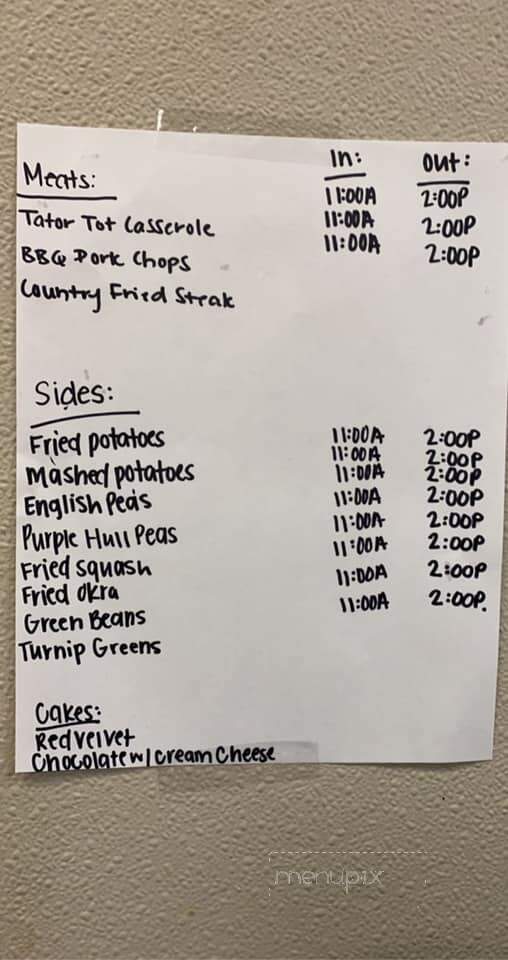 In: Out:
Meats: 11:00A 2:00P
Tator Tot Casserole 11:00A 2:00P
BBQ Pork Chops 11:00A 2:00P
Country Fried Steak
Sides:
Fried potatoes 11:00A 2:00P
Mashed potatoes 11:00A 2:00P
English Peas 11:00A 2:00P
Purple Hull Peas 11:00A 2:00P
Fried squash 11:00A 2:00P
Fried Okra 11:00A 2:00P
Green Beans 11:00A 2:00P
Turnip Greens 11:00A 2:00P.
Cakes:
Red velvet
Chocolate w/ cream Cheese
menupix